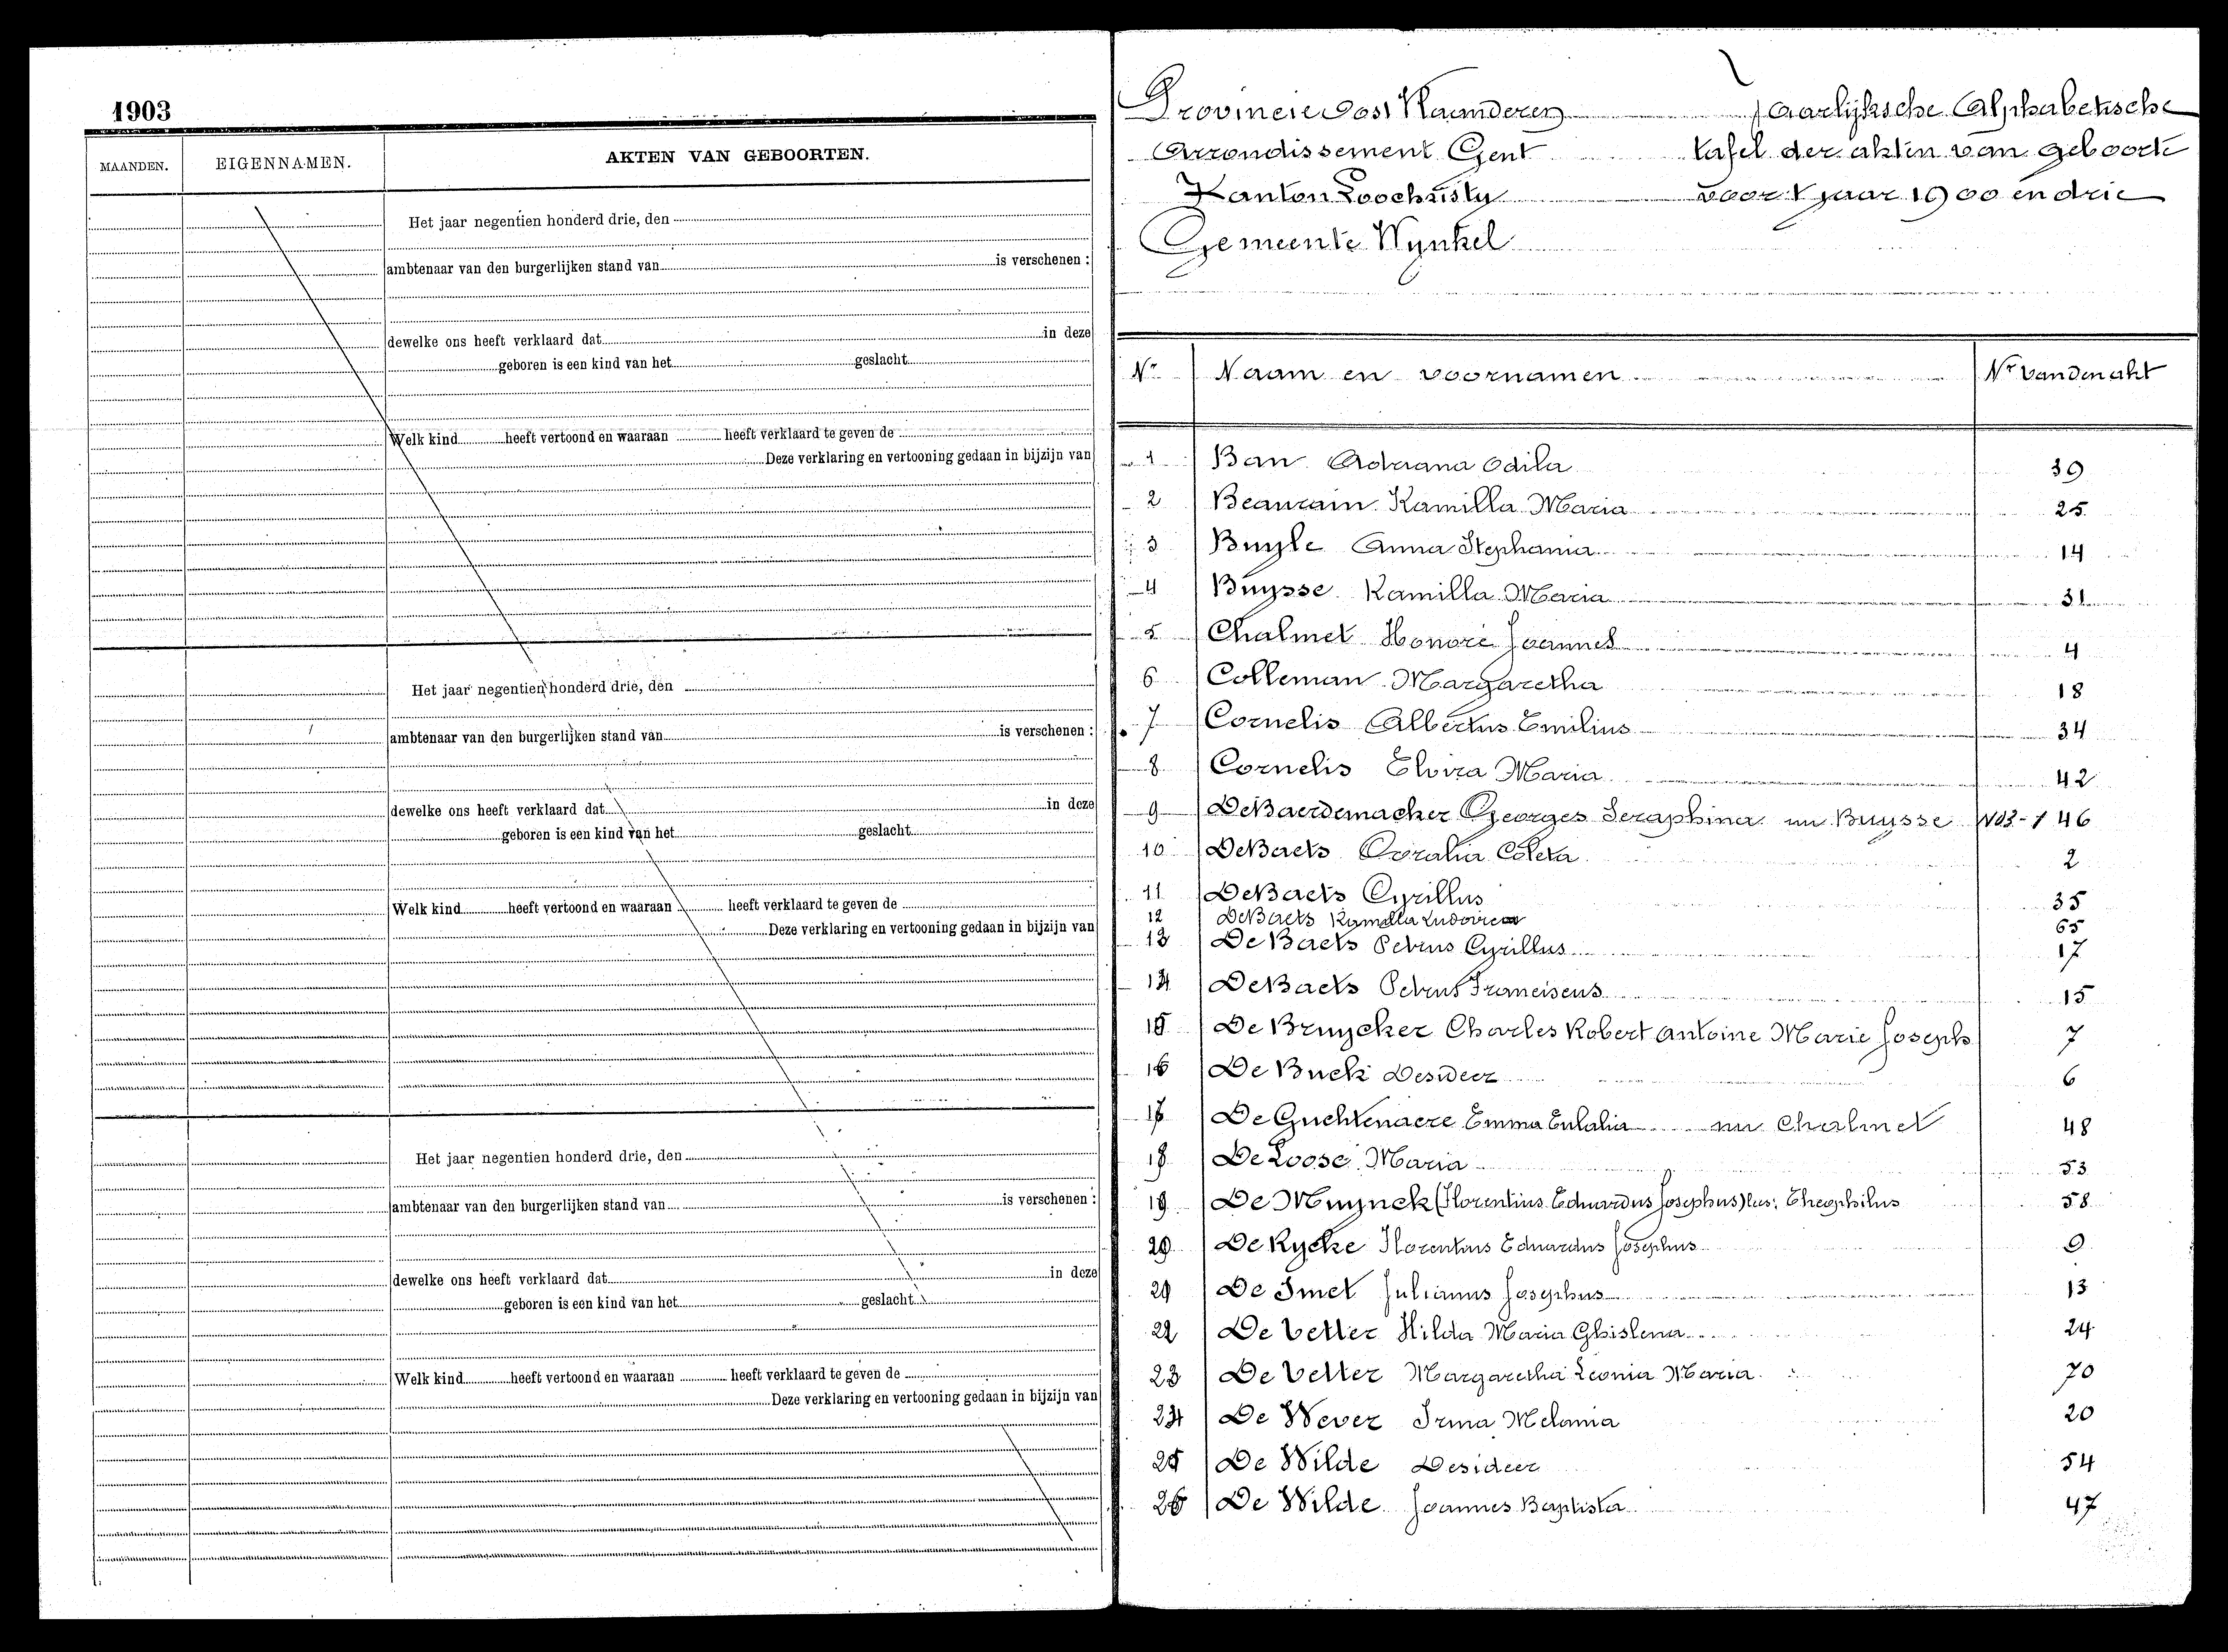 1903
MAANDEN. EIGENNAMEN. AKTEN VAN GEBOORTEN.
Het jaar negentien honderd drie, den
ambtenaar van den burgerlijken stand van is verschenen :
dewelke ons heeft verklaard dat in deze
geboren is een kind van het geslacht
Welk kind heeft vertoond en waaraan heeft verklaard te geven de
Deze verklaring en vertooning gedaan in bijzijn van
Het jaar negentien honderd drie, den
ambtenaar van den burgerlijken stand van is verschenen :
dewelke ons heeft verklaard dat in deze
geboren is een kind van het geslacht
Welk kind heeft vertoond en waaraan heeft verklaard te geven de
Deze verklaring en vertooning gedaan in bijzijn van
Het jaar negentien honderd drie, den
ambtenaar van den burgerlijken stand van is verschenen :
dewelke ons heeft verklaard dat in deze
geboren is een kind van het geslacht
Welk kind heeft vertoond en waaraan heeft verklaard te geven de
Deze verklaring en vertooning gedaan in bijzijn van
Provincie Oost Vlaanderen Jaarlijksche Alphabetische
Arrondissement Gent tafel der akten van geboorte
Kanton Loochristy voor t jaar 1900 en drie
Gemeente Wynkel
Nr Naam en voornamen Nr van den akt
1 Ban Adriana Odila 39
2 Beaurain Kamilla Maria 25
3 Buyle Anna Stephania 14
4 Buysse Kamilla Maria 31
5 Chalmet Honoré Joannes 4
6 Colleman Margaretha 18
7 Cornelis Albertus Emilius 34
8 Cornelis Elvira Maria 42
9 DeBaerdemacker Georges Seraphina nu Buysse 46
10 DeBaets Coralia Coleta 2
11 DeBaets Cyrillus 35
12 DeBaets Kamilla Ludovica 65
13 De Baets Petrus Cyrillus 17
14 DeBaets Petrus Franciscus 15
15 De Bruycker Charles Robert Antoine Marie Joseph 7
16 De Buck Desideer 6
17 De Guchtenaere Emma Eulalia nu Chalmet 48
18 De Loose Maria 53
19 De Muynck (Florentius Eduardus Josephus) lees: Theophilus 58
20 De Rycke Florentius Eduardus Josephus 9
21 De Smet Julianus Josephus 13
22 De Vetter Hilda Maria Ghislena 24
23 De Vetter Margaretha Leonia Maria 70
24 De Wever Irma Melania 20
25 De Wilde Desideer 54
26 De Wilde Joannes Baptista 47